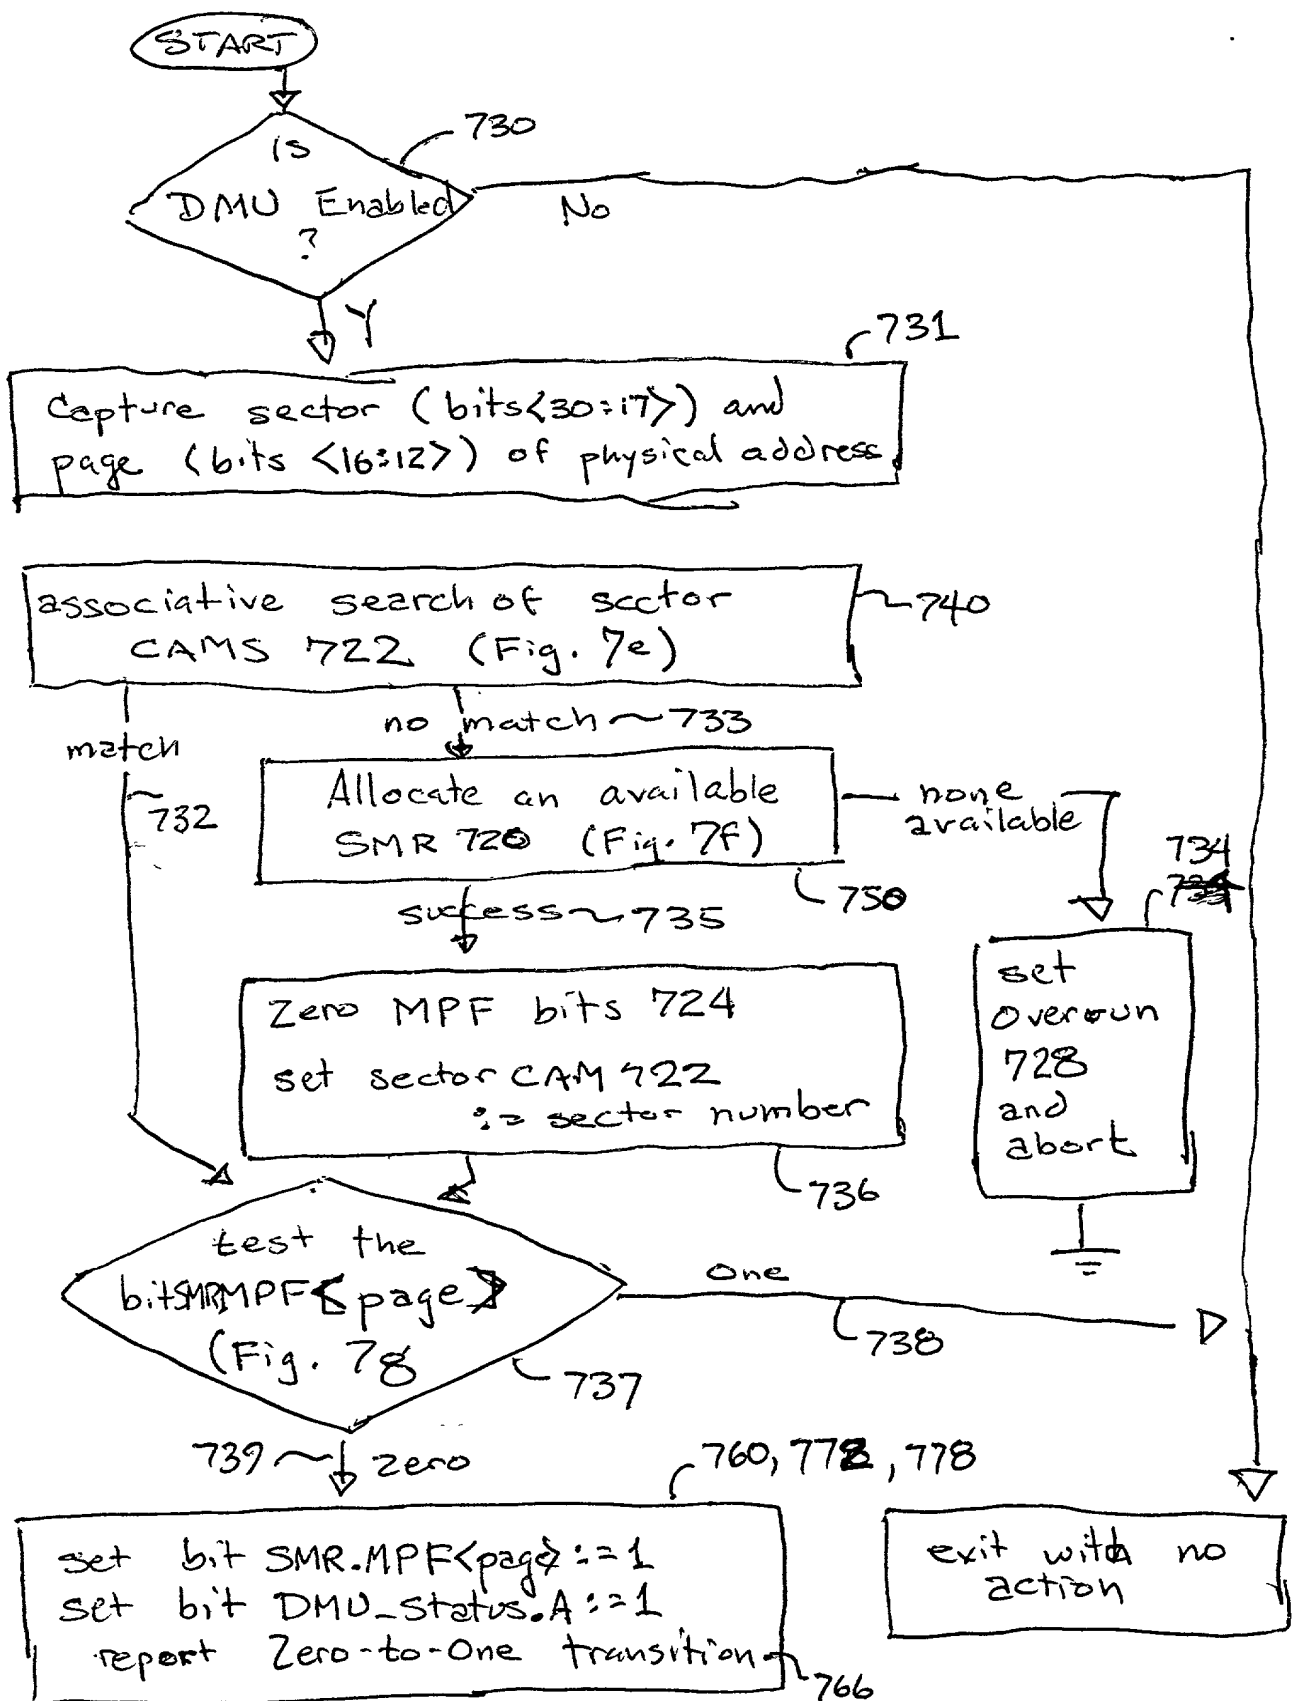 START
730
is
DMU Enabled
?
No
Y
731
Capture sector (bits<30:17>) and
page (bits <16:12>) of physical address
associative search of sector
CAMS 722 (Fig. 7e)
740
match
no match ~ 733
732
Allocate an available
SMR 720 (Fig. 7f)
none
available
750
734
success ~ 735
set
overrun
728
and
abort
Zero MPF bits 724
set sector CAM 722
:= sector number
736
test the
bit SMR MPF<page>
(Fig. 7g
One
738
737
739 ~ zero
760, 772, 778
set bit SMR.MPF<page> :=1
set bit DMU_Status.A :=1
report Zero-to-One transition
766
exit with no
action